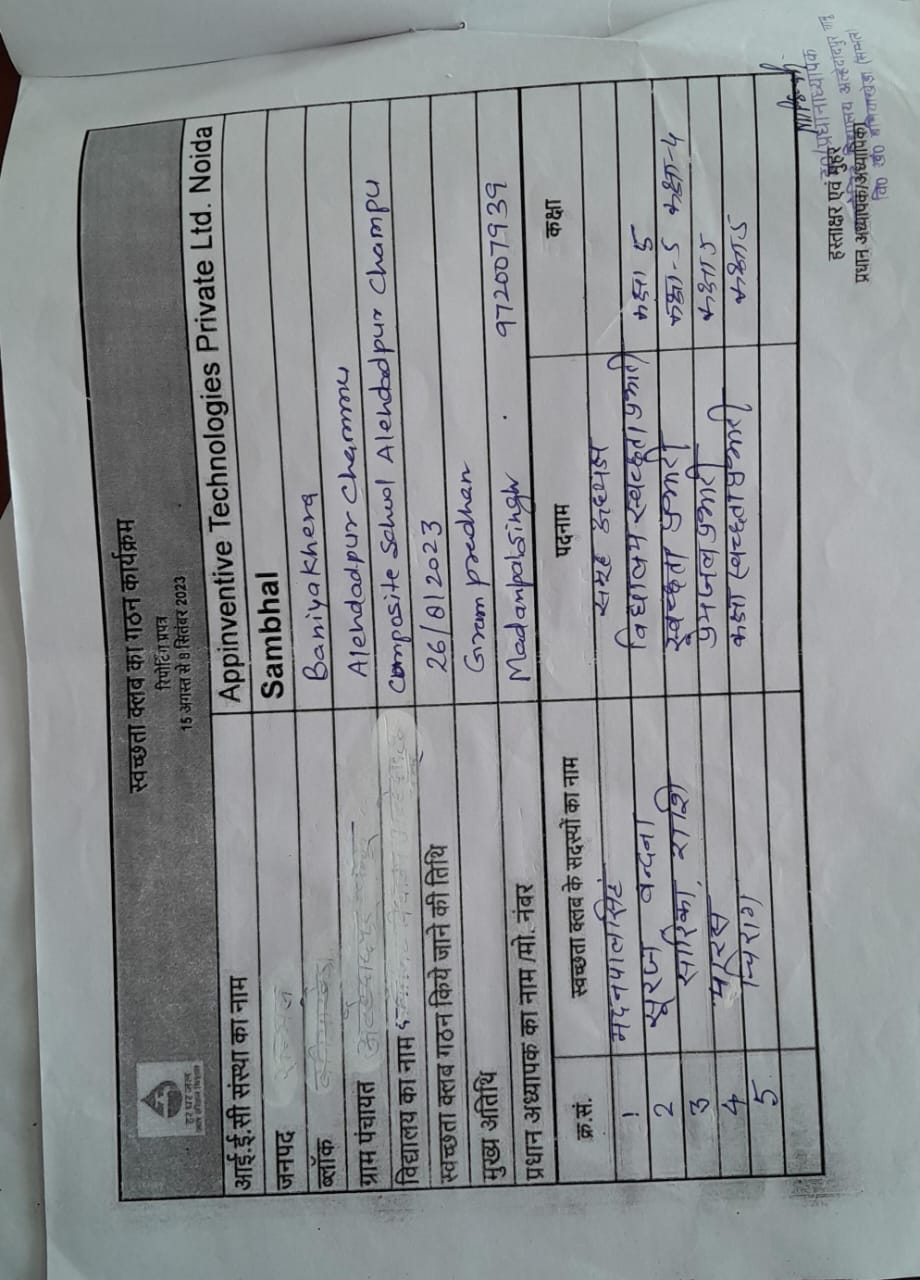 हर घर जल
जल जीवन मिशन
स्वच्छता क्लब का गठन कार्यक्रम
रिपोर्टिंग प्रपत्र
15 अगस्त से 8 सितंबर 2023
आई.ई.सी संस्था का नाम Appinventive Technologies Private Ltd. Noida
जनपद Sambhal
ब्लॉक Baniyakhera
ग्राम पंचायत Alehdadpur Chammu
विद्यालय का नाम Composite School Alehdadpur Champu
स्वच्छता क्लब गठन किये जाने की तिथि 26/8/2023
मुख्य अतिथि Gram pradhan
प्रधान अध्यापक का नाम/मो. नंबर Madanpalsingh . 972007939
क्र.सं. स्वच्छता क्लब के सदस्यों का नाम पदनाम कक्षा
1 मदनपालसिंह समूह अध्यक्ष
2 सूरज वन्दना विद्यालय स्वच्छता प्रभारी कक्षा 5
3 सारिका, राशि स्वच्छता प्रभारी कक्षा-5 कक्षा-4
4 पारस पेयजल प्रभारी कक्षा 5
5 चिराग कक्षा स्वच्छता प्रभारी कक्षा 5
इ०/प्रधानाध्यापक
हस्ताक्षर एवं मुहर
प्रधान अध्यापक/अध्यापिका